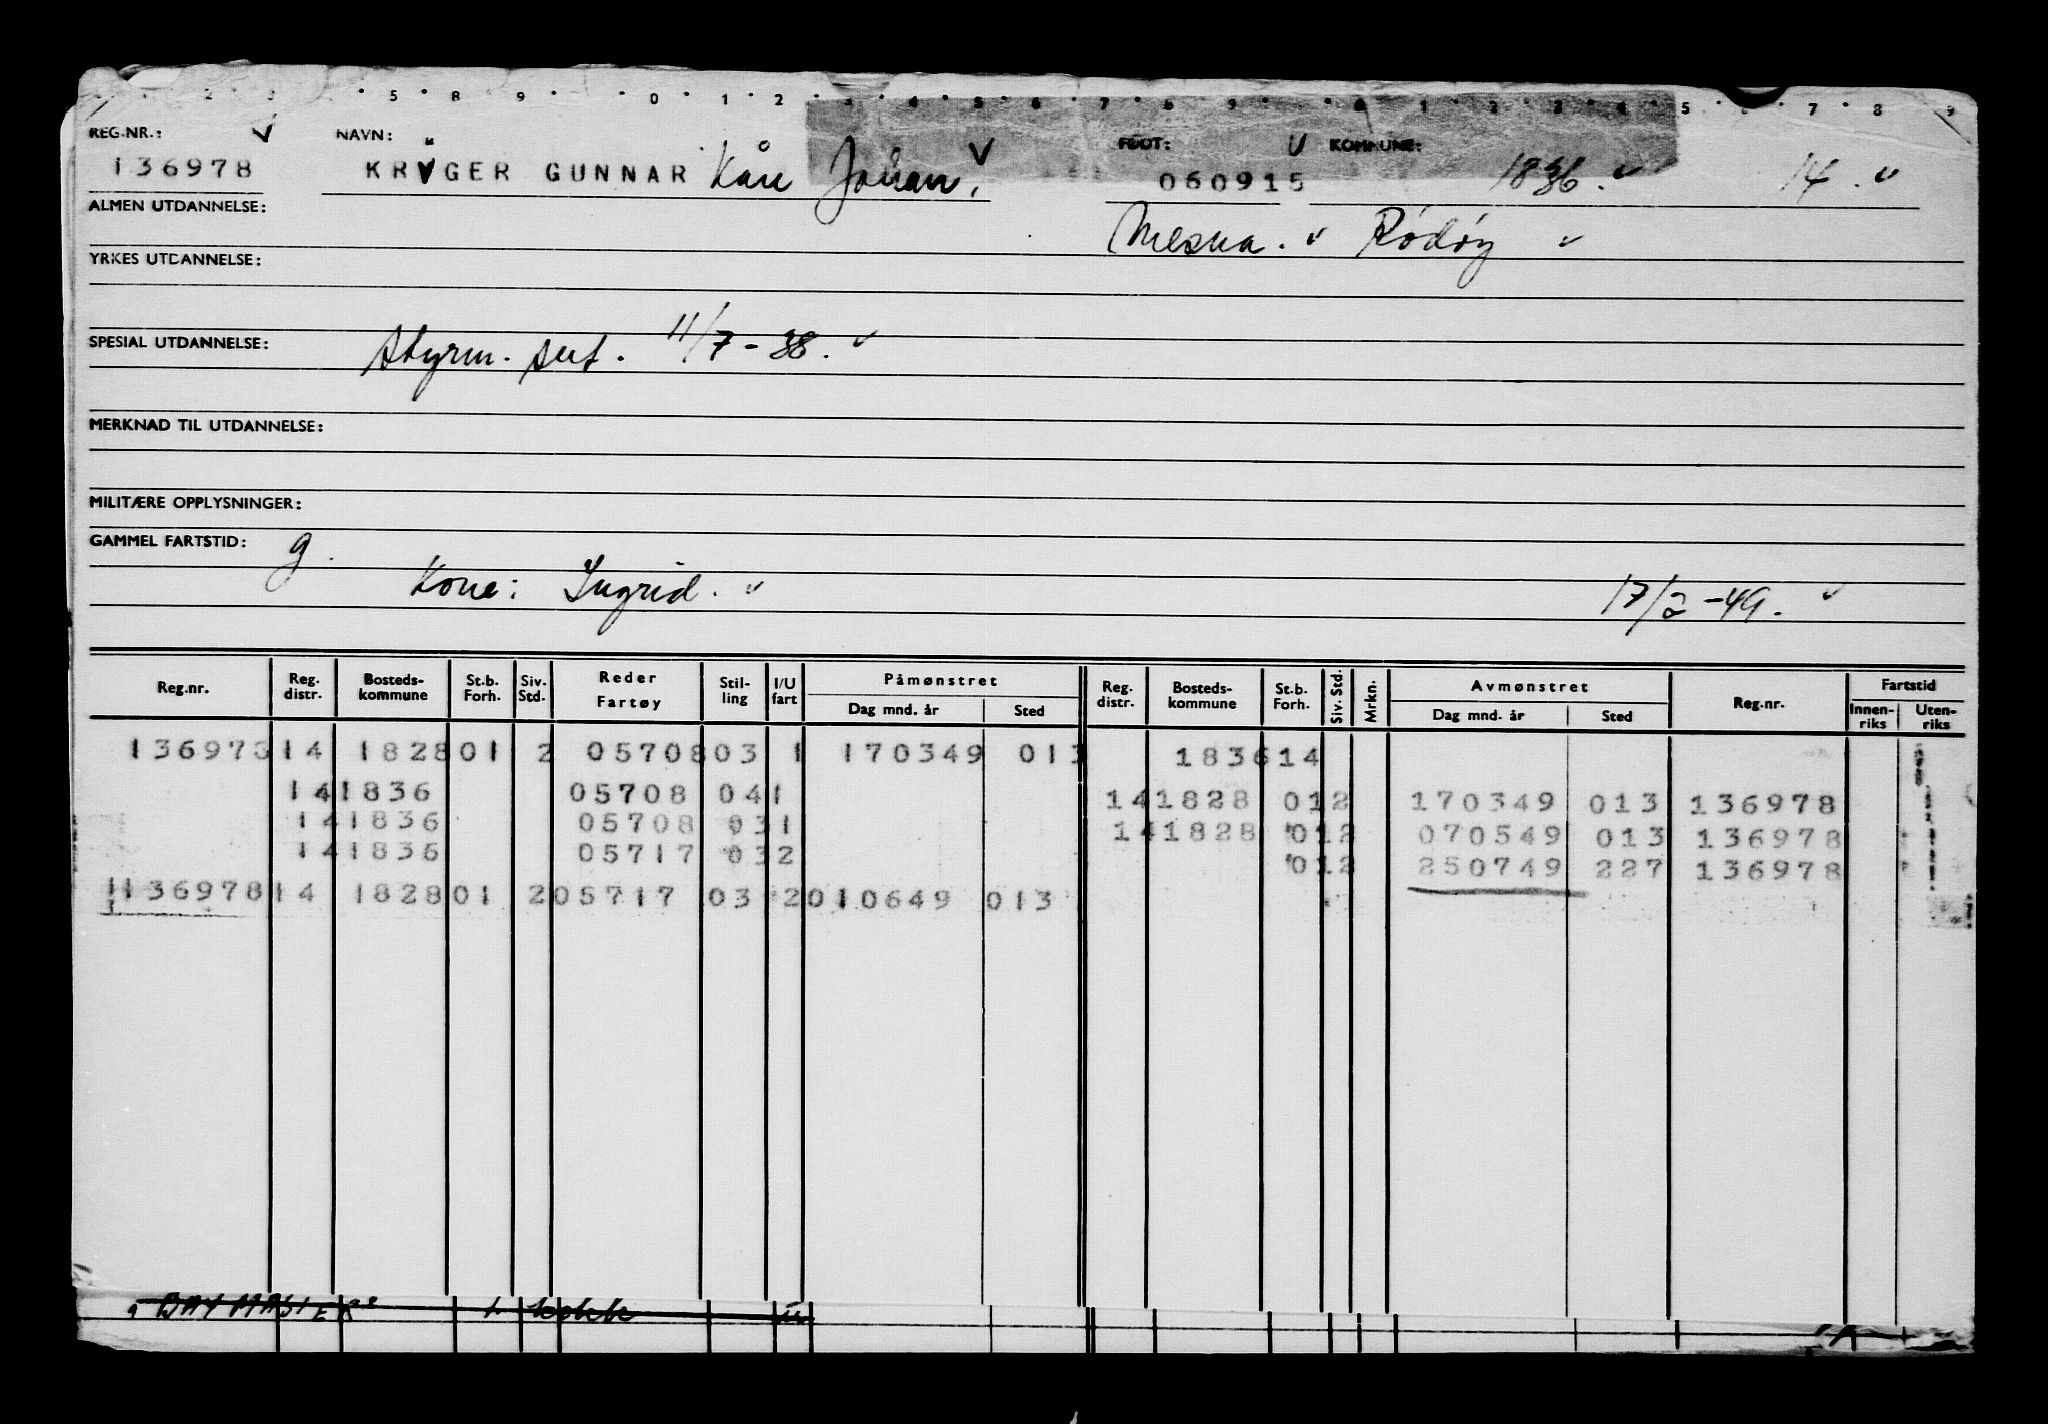 2 3 5 8 9 0 1 2 3 4 5 6 7 8 9 0 1 2 3 4 5 6 7 8 9
REG.NR.: V NAVN: FØDT: V KOMMUNE:
136978 KRÜGER GUNNAR Kåre Johan. V 060915 1836. v 14. v
ALMEN UTDANNELSE: Mesna. v Rödöy v
YRKES UTDANNELSE:
SPESIAL UTDANNELSE: Styrm. sert. 11/7-38. v
MERKNAD TIL UTDANNELSE:
MILITÆRE OPPLYSNINGER:
GAMMEL FARTSTID: g.
Kone: Ingrid. v 17/2-49. v
Reg.nr. Reg. distr. Bosteds-kommune St.b. Forh. Siv. Std. Reder Fartøy Stil-ling I/U fart Påmønstret Dag mnd. år Sted Reg. distr. Bosteds-kommune St.b. Forh. Siv. Std. Mrkn. Avmønstret Dag mnd. år Sted Reg.nr. Fartstid Innen-riks Uten-riks
136978 14 1828 01 2 05708 03 1 170349 013 1836 14
14 1836 05708 04 1 14 1828 01 2 170349 013 136978
14 1836 05708 03 1 14 1828 01 2 070549 013 136978
14 1836 05717 03 2 01 2 250749 227 136978
136978 14 1828 01 2 05717 03 2 010649 013
BAY MASTER kokk u